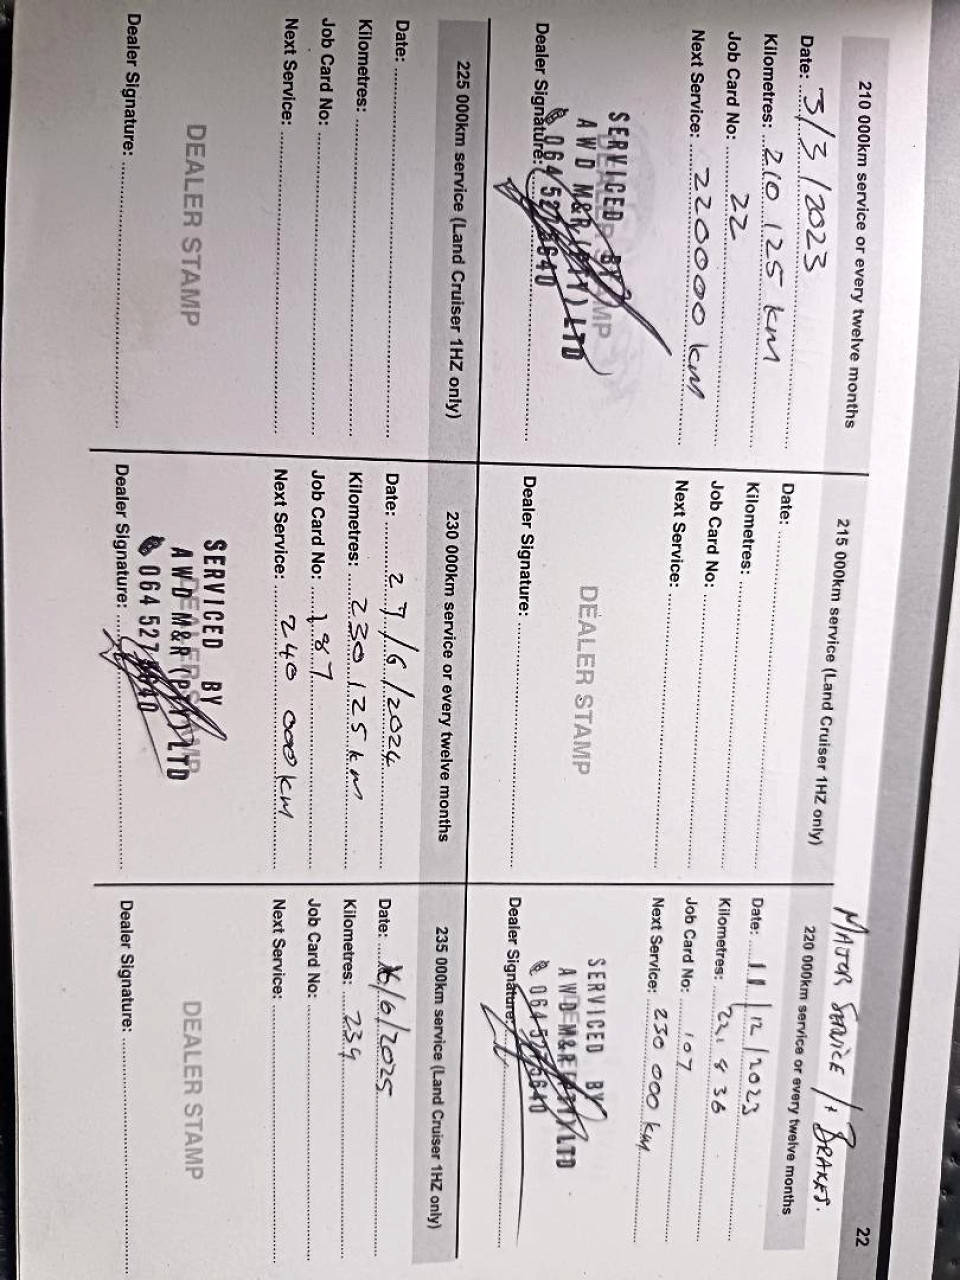 22
210 000km service or every twelve months
Date: 3/3/2023
Kilometres: 210 125 km
Job Card No: 22
Next Service: 220000 km
DEALER STAMP
SERVICED BY
AWD M&R (PTY) LTD
064 527 5640
Dealer Signature:
215 000km service (Land Cruiser 1HZ only)
Date:
Kilometres:
Job Card No:
Next Service:
DEALER STAMP
Dealer Signature:
MAJOR SERVICE / + BRAKES.
220 000km service or every twelve months
Date: 11/12/2023
Kilometres: 221 836
Job Card No: 107
Next Service: 230 000 km
SERVICED BY
AWD M&R (PTY) LTD
064 527 5640
Dealer Signature:
225 000km service (Land Cruiser 1HZ only)
Date:
Kilometres:
Job Card No:
Next Service:
DEALER STAMP
Dealer Signature:
230 000km service or every twelve months
Date: 27/6/2024
Kilometres: 230 125 km
Job Card No: 187
Next Service: 240 000 km
DEALER STAMP
SERVICED BY
AWD M&R (PTY) LTD
064 527 5640
Dealer Signature:
235 000km service (Land Cruiser 1HZ only)
Date: /6/2025
Kilometres: 239
Job Card No:
Next Service:
DEALER STAMP
Dealer Signature: